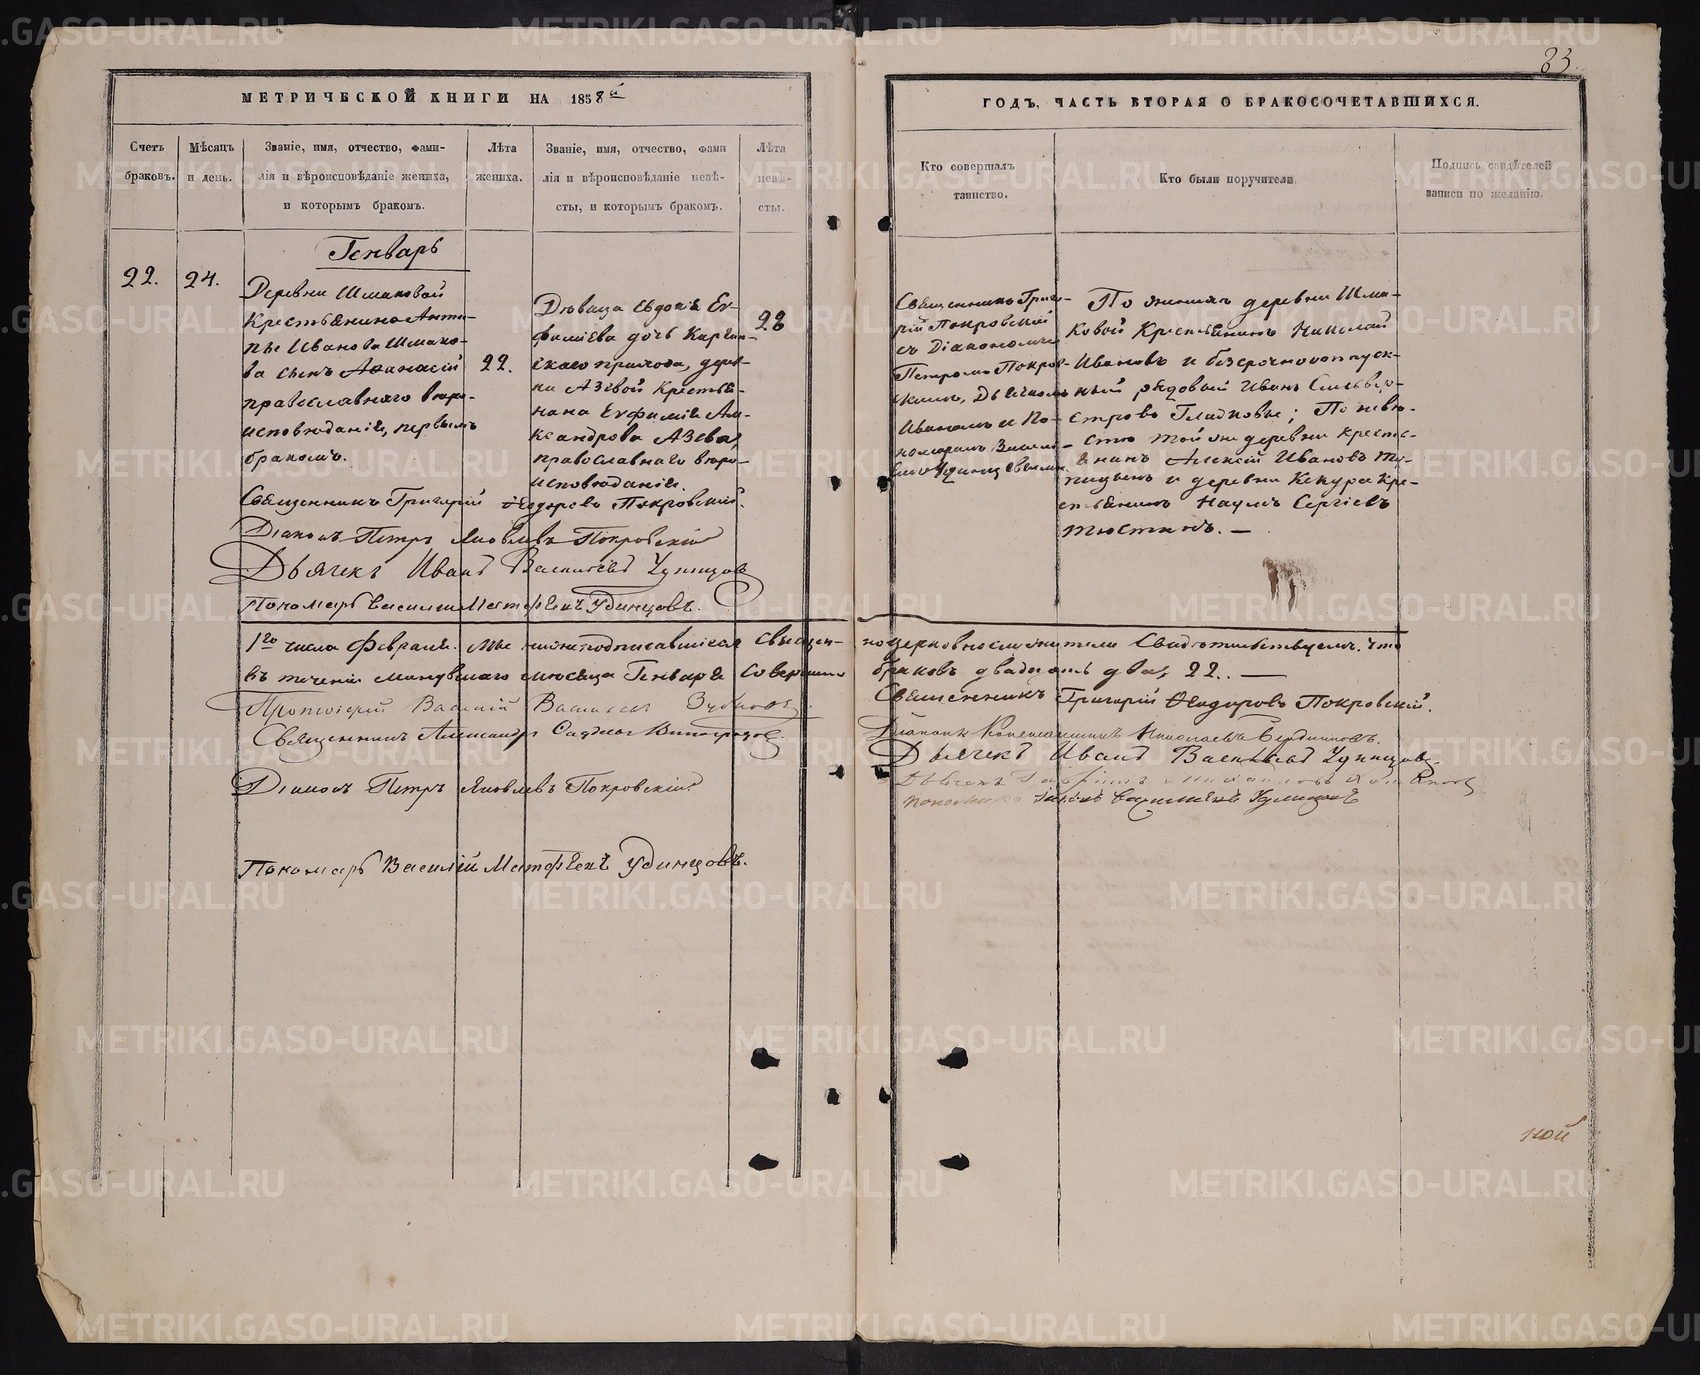 83
МЕТРИЧЕСКОЙ КНИГИ НА 1858й
ГОДЪ, ЧАСТЬ ВТОРАЯ О БРАКОСОЧЕТАВШИХСЯ.
Счетъ
браковъ.
Мѣсяцъ
и день.
Званіе, имя, отчество, фами-
лія и вѣроисповѣданіе жениха,
и которымъ бракомъ.
Лѣта
жениха.
Званіе, имя, отчество, фами
лія и вѣроисповѣданіе невѣ-
сты, и которымъ бракомъ.
Лѣта
невѣ-
сты.
Кто совершалъ
таинство.
Кто были поручители
Подпись свидѣтелей
записи по желанію.
Генварь
22.
24.
Деревни Шмаковой
Крестьянина Анти-
пы Иванова Шмако-
ва сынъ Аѳанасій
православнаго вѣро-
исповѣданія, первымъ
бракомъ.
22.
Дѣвица Евдокія Ев-
фиміева дочь Каргин-
скаго прихода, дерев-
ни Азѣвой Крестья-
нина Евфимія Ал-
ксандрова Азева,
православнаго вѣро-
исповѣданія.
28
Священникъ Григо-
рій Покровскій
съ Діакономъ
Петромъ Покров-
скимъ, Дьячкомъ
Иваномъ и По-
номаремъ
Удинцовымъ.
По женихѣ деревни Шма-
ковой Крестьянинъ Николай
Ивановъ и безсрочноотпуск-
ный рядовой Иванъ Сильвер-
стровъ Гладковы; По невѣ-
стѣ той же деревни кресть-
янинъ Алексѣй Ивановъ
и деревни Кекура Кре-
стьянинъ Наумъ Сергіевъ
Тюстинъ. —
Священникъ Григорій Ѳеодоровъ Покровскій.
Діаконъ Петръ Яковлевъ Покровскій
Дьячекъ Иванъ Васильевъ
Пономарь Василій Матфеевъ Удинцовъ.
1го числа Февраля. Мы нижеподписавшіеся священ-
но церковнослужители Свидѣтельствуемъ, что
въ теченіи минувшаго мѣсяца Генваря Совершено
браковъ двадцать два, 22. —
Протоіерей Василій Васильевъ
Священникъ Александръ Виноградовъ.
Діаконъ Петръ Яковлевъ Покровскій
Пономарь Василій Матфеевъ Удинцовъ.
Священникъ Григорій Ѳеодоровъ Покровскій.
Діаконъ Николаевъ
Дьячекъ Иванъ Васильевъ
Дьячекъ
Пономарь
ной
METRIKI.GASO-URAL.RU